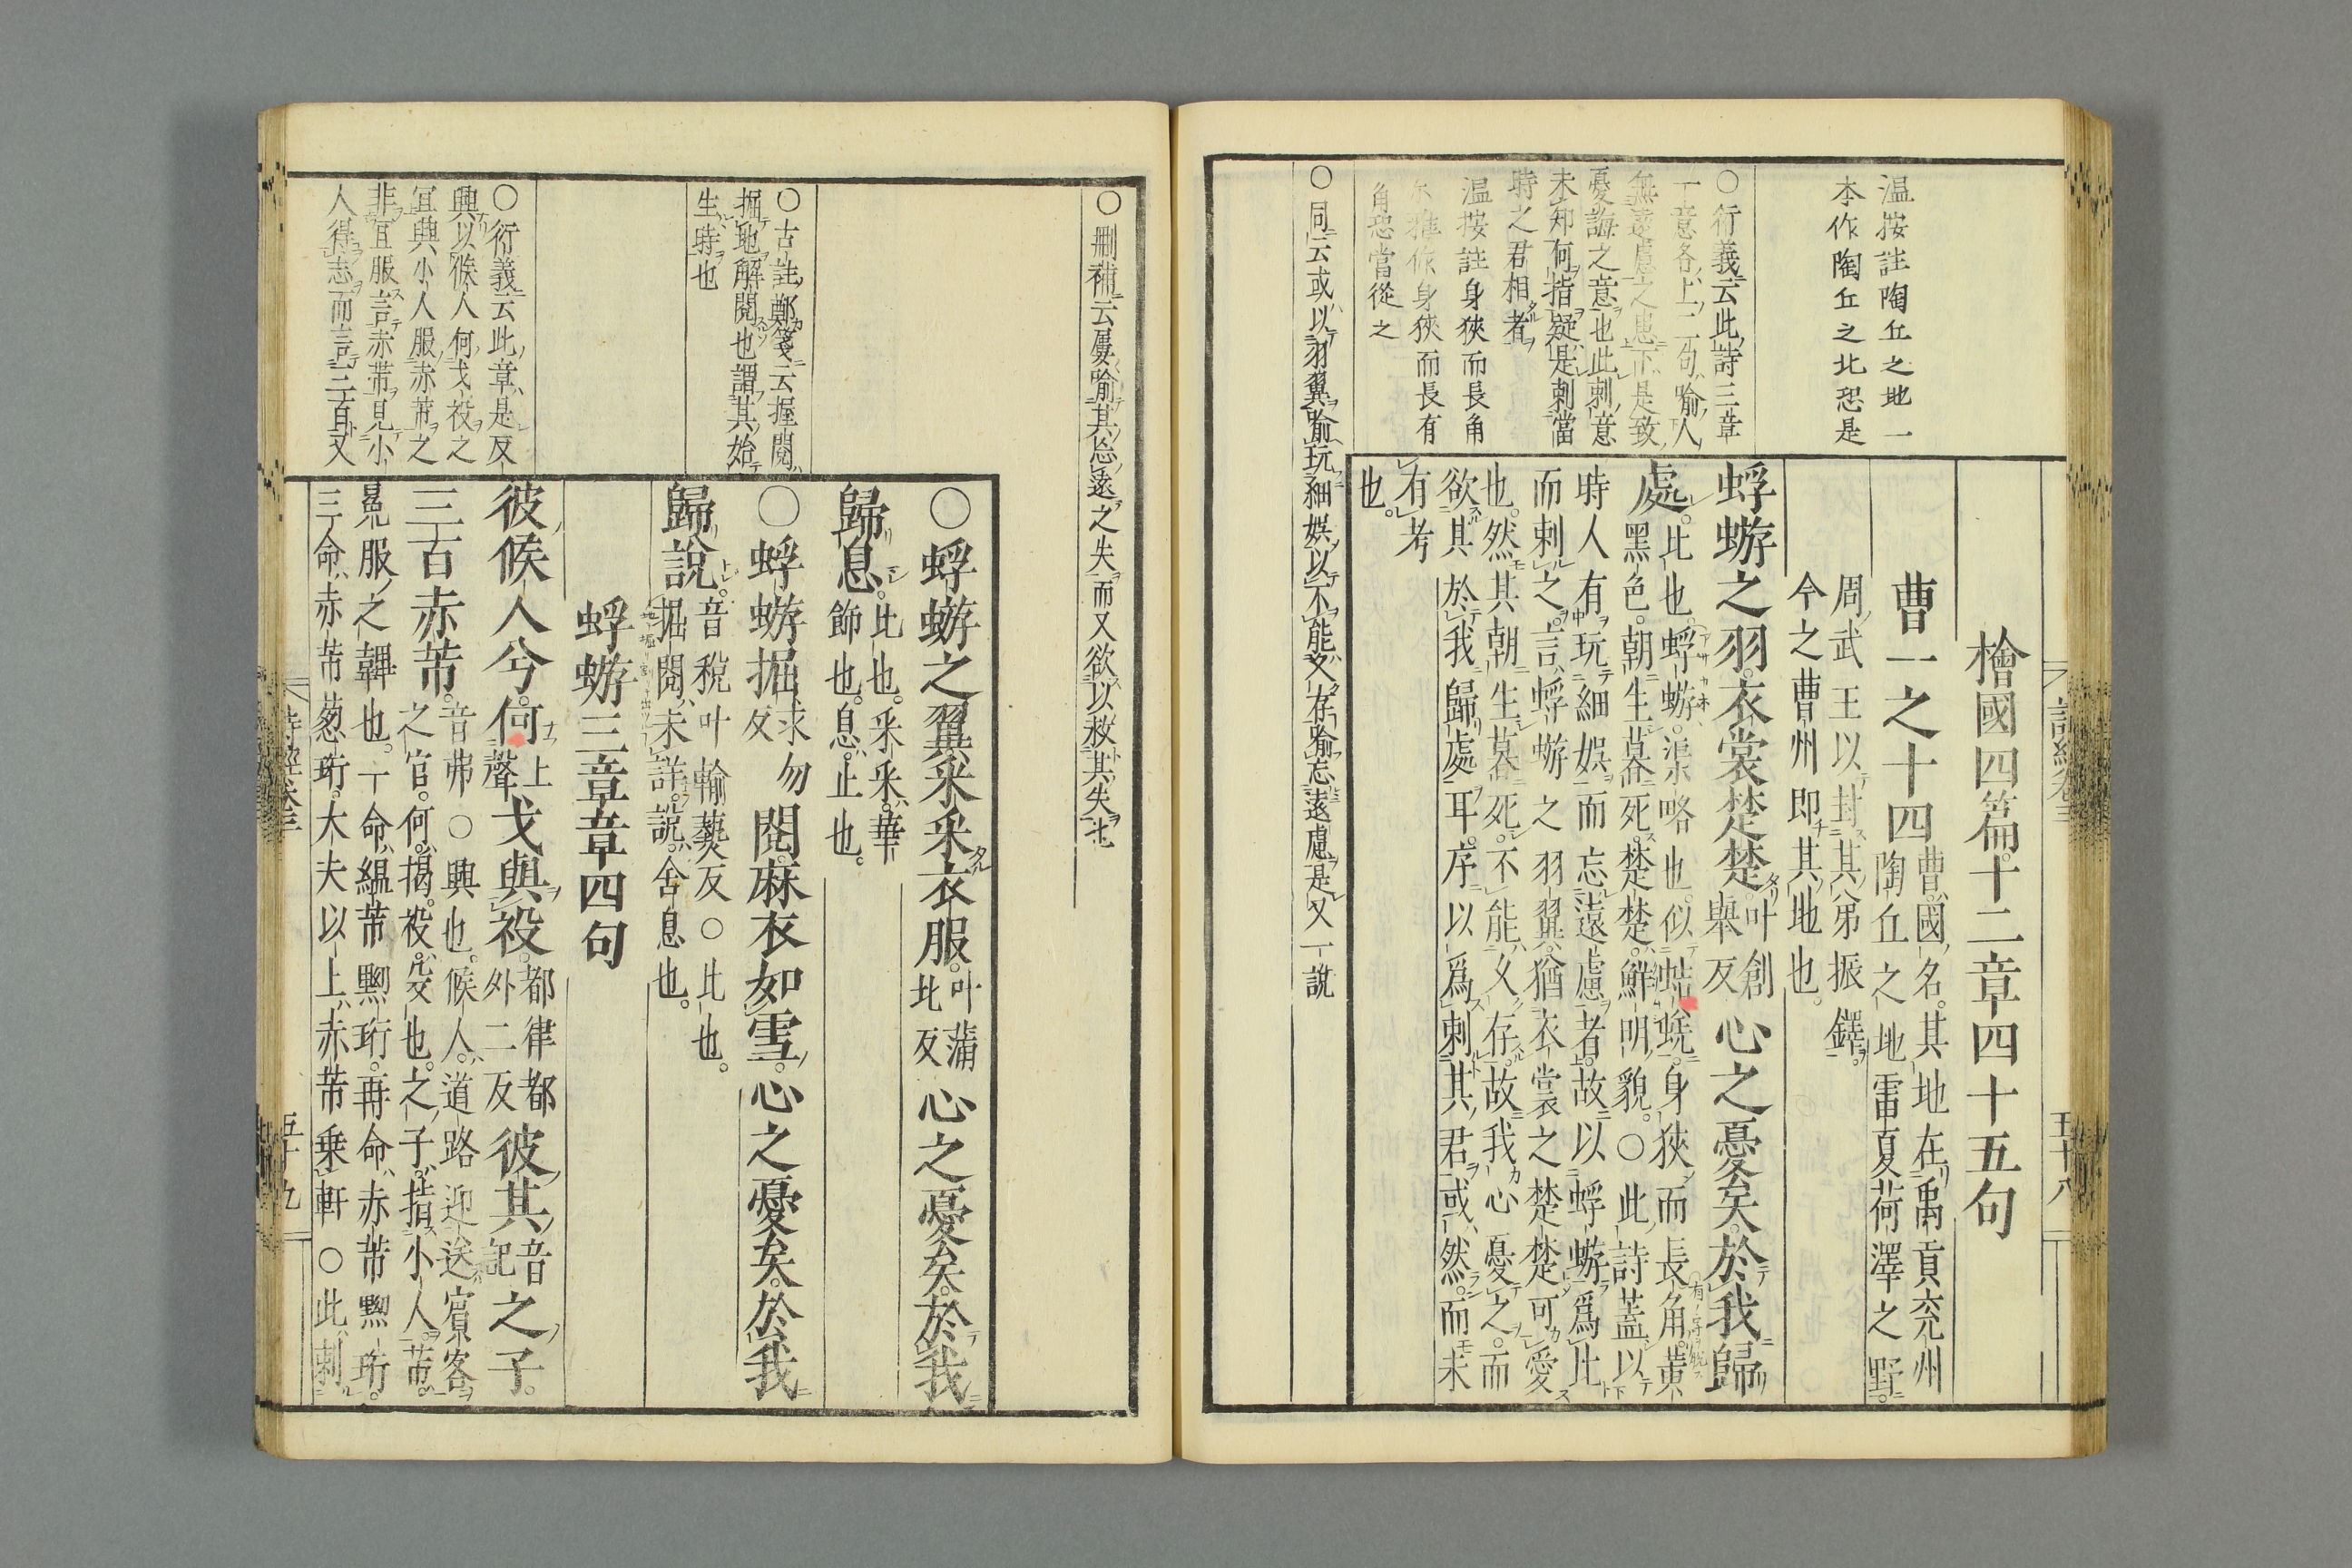 檜國四篇十二章四十五句
曹一之十四
曹國名其地在禹貢兗州
陶丘之地雷夏荷澤之野
周武王以封其弟振鐸
今之曹州即其地也
蜉蝣之羽衣裳楚楚叶創舉反心之憂矣於我歸
處比也蜉蝣渠略也似蛣蜣身狹而長角黃
黑色朝生暮死楚楚鮮明貌○此詩蓋以
時人有玩細娛而忘遠慮者故以蜉蝣爲比
而刺之言蜉蝣之羽翼猶衣裳之楚楚可愛
也然其朝生暮死不能久存故我心憂之而
欲其於我歸處耳序以爲刺其君或然而未
有考
也
溫按註陶丘之地一
本作陶丘之北恐是
○衍義云此詩三章
一意各上二句喻人
無遠慮之患下是致
憂誨之意也此刺意
未知何指疑是刺當
時之君相者
溫按註身狹而長角
推作身狹而長有
角恐當從之
○同云或以羽翼喻玩細娯以不能久存喻忘遠慮是又一說
詩經卷三
五十八
○刪補云屢喻其忘遠之失而又欲以救其失也
○蜉蝣之翼采采衣服叶蒲北反心之憂矣於我
歸息比也采采華飾也息止也
○蜉蝣掘求勿反閱麻衣如雪心之憂矣於我
歸說音稅叶輸爇反○比也
掘閱未詳說舍息也
蜉蝣三章章四句
彼候人兮何上聲戈與祋都律都外二反彼其音記之子
三百赤芾音弗○興也候人道路迎送賓客
之官何揭祋殳也之子指小人芾
冕服之韠也一命縕芾黝珩再命赤芾黝珩
三命赤芾蔥珩大夫以上赤芾乗軒○此刺
○古註鄭箋云掘閱
掘地解閱也謂其始
生時也
○衍義云此章是反
興以候人何戈祋之
宜興小人服赤芾之
非宜服言赤芾見小
人得志而言三百又
詩經卷三
五十九